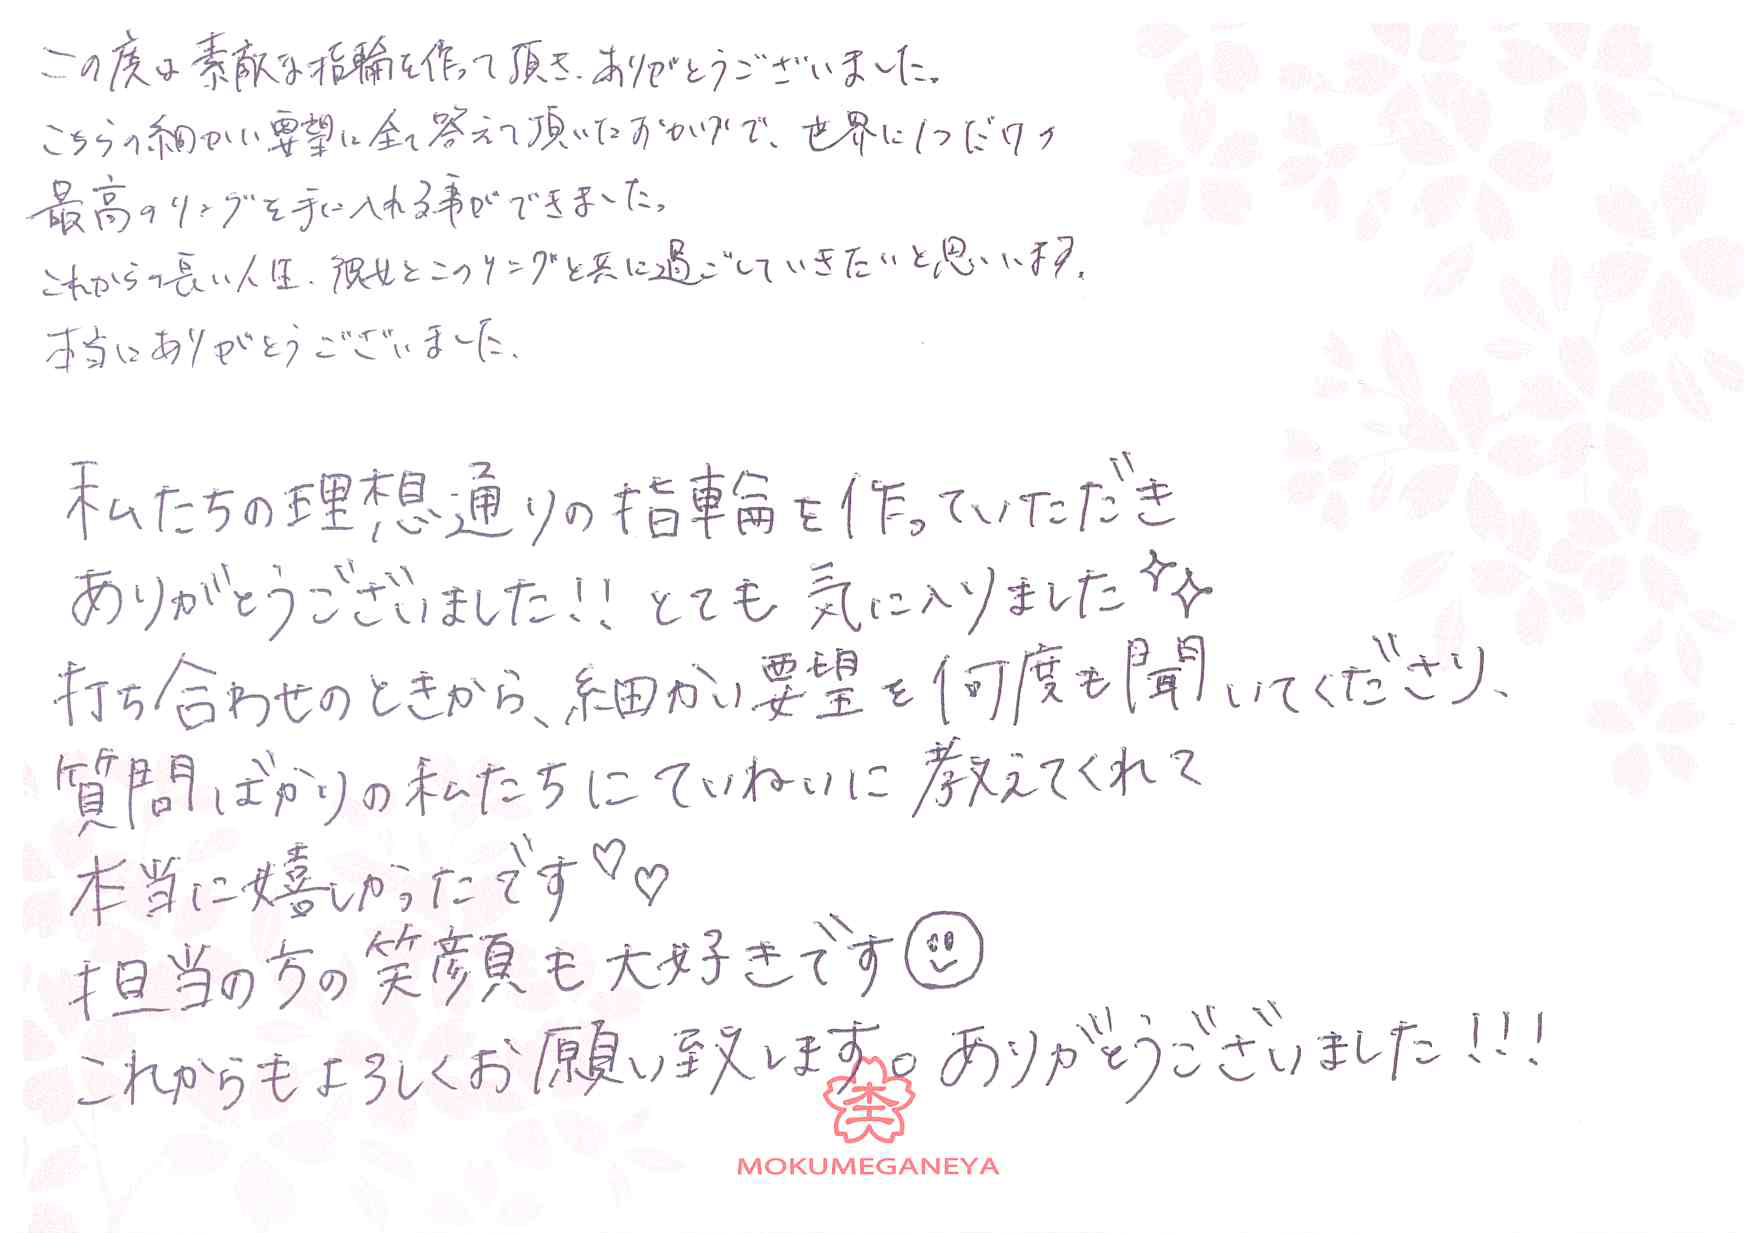 この度は素敵な指輪を作って頂き、ありがとうございました。
こちらの細かい要望に全て答えて頂いたおかげで、世界に1つだけの
最高のリングを手に入れる事ができました。
これからの長い人生、彼女とこのリングと共に過ごしていきたいと思います。
本当にありがとうございました。
私たちの理想通りの指輪を作っていただき
ありがとうございました!! とても気に入りました✧✧
打ち合わせのときから、細かい要望を何度も聞いてくださり、
質問ばかりの私たちにていねいに教えてくれて
本当に嬉しかったです♡♡
担当の方の笑顔も大好きです☺
これからもよろしくお願い致します。ありがとうございました!!!
MOKUMEGANEYA